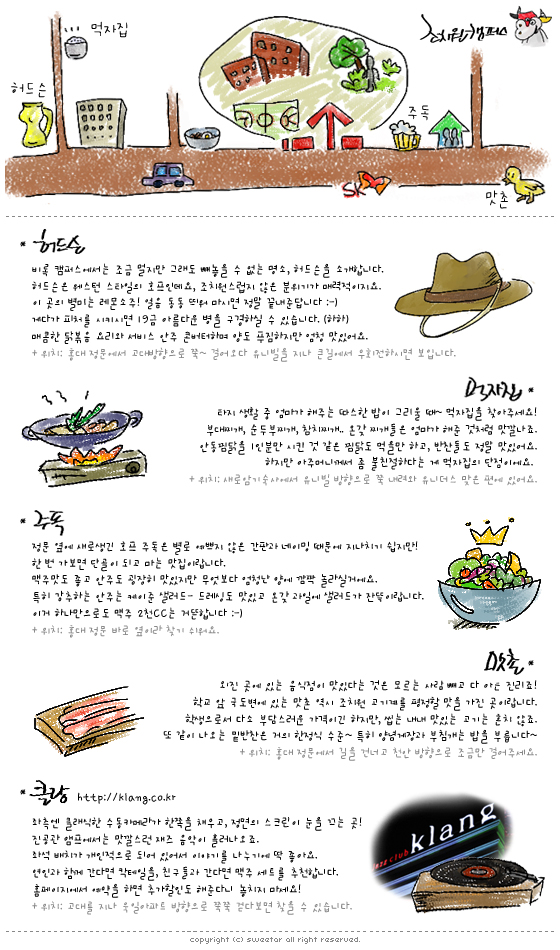 먹자집
조치원 캠퍼스
허드슨
주둑
SK
맛촌
* 허드슨
비록 캠퍼스에서는 조금 멀지만 그래도 빼놓을 수 없는 명소, 허드슨을 소개합니다.
허드슨은 웨스턴 스타일의 호프인데요, 조치원스럽지 않은 분위기가 매력적이지요.
이 곳의 별미는 레몬소주! 얼음 동동 띄워 마시면 정말 끝내준답니다 :-)
게다가 피쳐를 시키시면 19금 아름다운 병을 구경하실 수 있습니다. (하하)
매콤한 닭볶음 요리와 서비스 안주 콘버터하며 양도 푸짐하지만 엄청 맛있어요.
+ 위치: 홍대 정문에서 고대방향으로 쭉~ 걸어오다 유니빌을 지나 큰길에서 우회전하시면 보입니다.
먹자집 *
타지 생활 중 엄마가 해주는 따스한 밥이 그리울 때~ 먹자집을 찾아주세요!
부대찌개, 순두부찌개, 참치찌개.. 온갖 찌개들은 엄마가 해준 것처럼 맛깔나죠.
안동찜닭을 1인분만 시킨 것 같은 찜닭도 먹을만 하고, 반찬들도 정말 맛있어요.
하지만 아주머니께서 좀 불친절하다는 게 먹자집의 단점이에요.
+ 위치: 새로암기숙사에서 유니빌 방향으로 쭉 내려와 유니더스 맞은 편에 있어요.
* 주둑
정문 옆에 새로생긴 호프 주둑은 별로 예쁘지 않은 간판과 네이밍 때문에 지나치기 쉽지만!
한 번 가보면 단골이 되고 마는 맛집이랍니다.
맥주맛도 좋고 안주도 굉장히 맛있지만 무엇보다 엄청난 양에 깜짝 놀라실거에요.
특히 강추하는 안주는 케이준 샐러드- 드레싱도 맛있고 온갖 과일에 샐러드가 잔뜩이랍니다.
이거 하나만으로도 맥주 2천CC는 거뜬합니다 :-)
+ 위치: 홍대 정문 바로 옆이라 찾기 쉬워요.
맛촌 *
외진 곳에 있는 음식점이 맛있다는 것은 모르는 사람 빼고 다 아는 진리죠!
학교 앞 국도변에 있는 맛촌 역시 조치원 고기계를 평정할 맛을 가진 곳이랍니다.
학생으로서 다소 부담스러운 가격이긴 하지만, 씹는 내내 맛있는 고기는 흔치 않죠.
또 같이 나오는 밑반찬은 거의 한정식 수준~ 특히 양념게장과 부침개는 밥을 부릅니다~
+ 위치: 홍대 정문에서 길을 건너고 천안 방향으로 조금만 걸어주세요.
* 클랑 http://klang.co.kr
좌측엔 클래식한 수동카메라가 한쪽을 채우고, 정면의 스크린이 눈을 끄는 곳!
진공관 앰프에서는 맛깔스런 재즈 음악이 흘러나오죠.
좌석 배치가 개인적으로 되어 있어서 이야기를 나누기에 딱 좋아요.
연인과 함께 간다면 칵테일을, 친구들과 간다면 맥주 세트를 추천합니다.
홈페이지에서 예약을 하면 추가할인도 해준다니 놓치지 마세요!
+ 위치: 고대를 지나 욱일아파트 방향으로 쭉쭉 걷다보면 찾을 수 있습니다.
klang
jazz club
copyright (c) sweetar all right reserved.